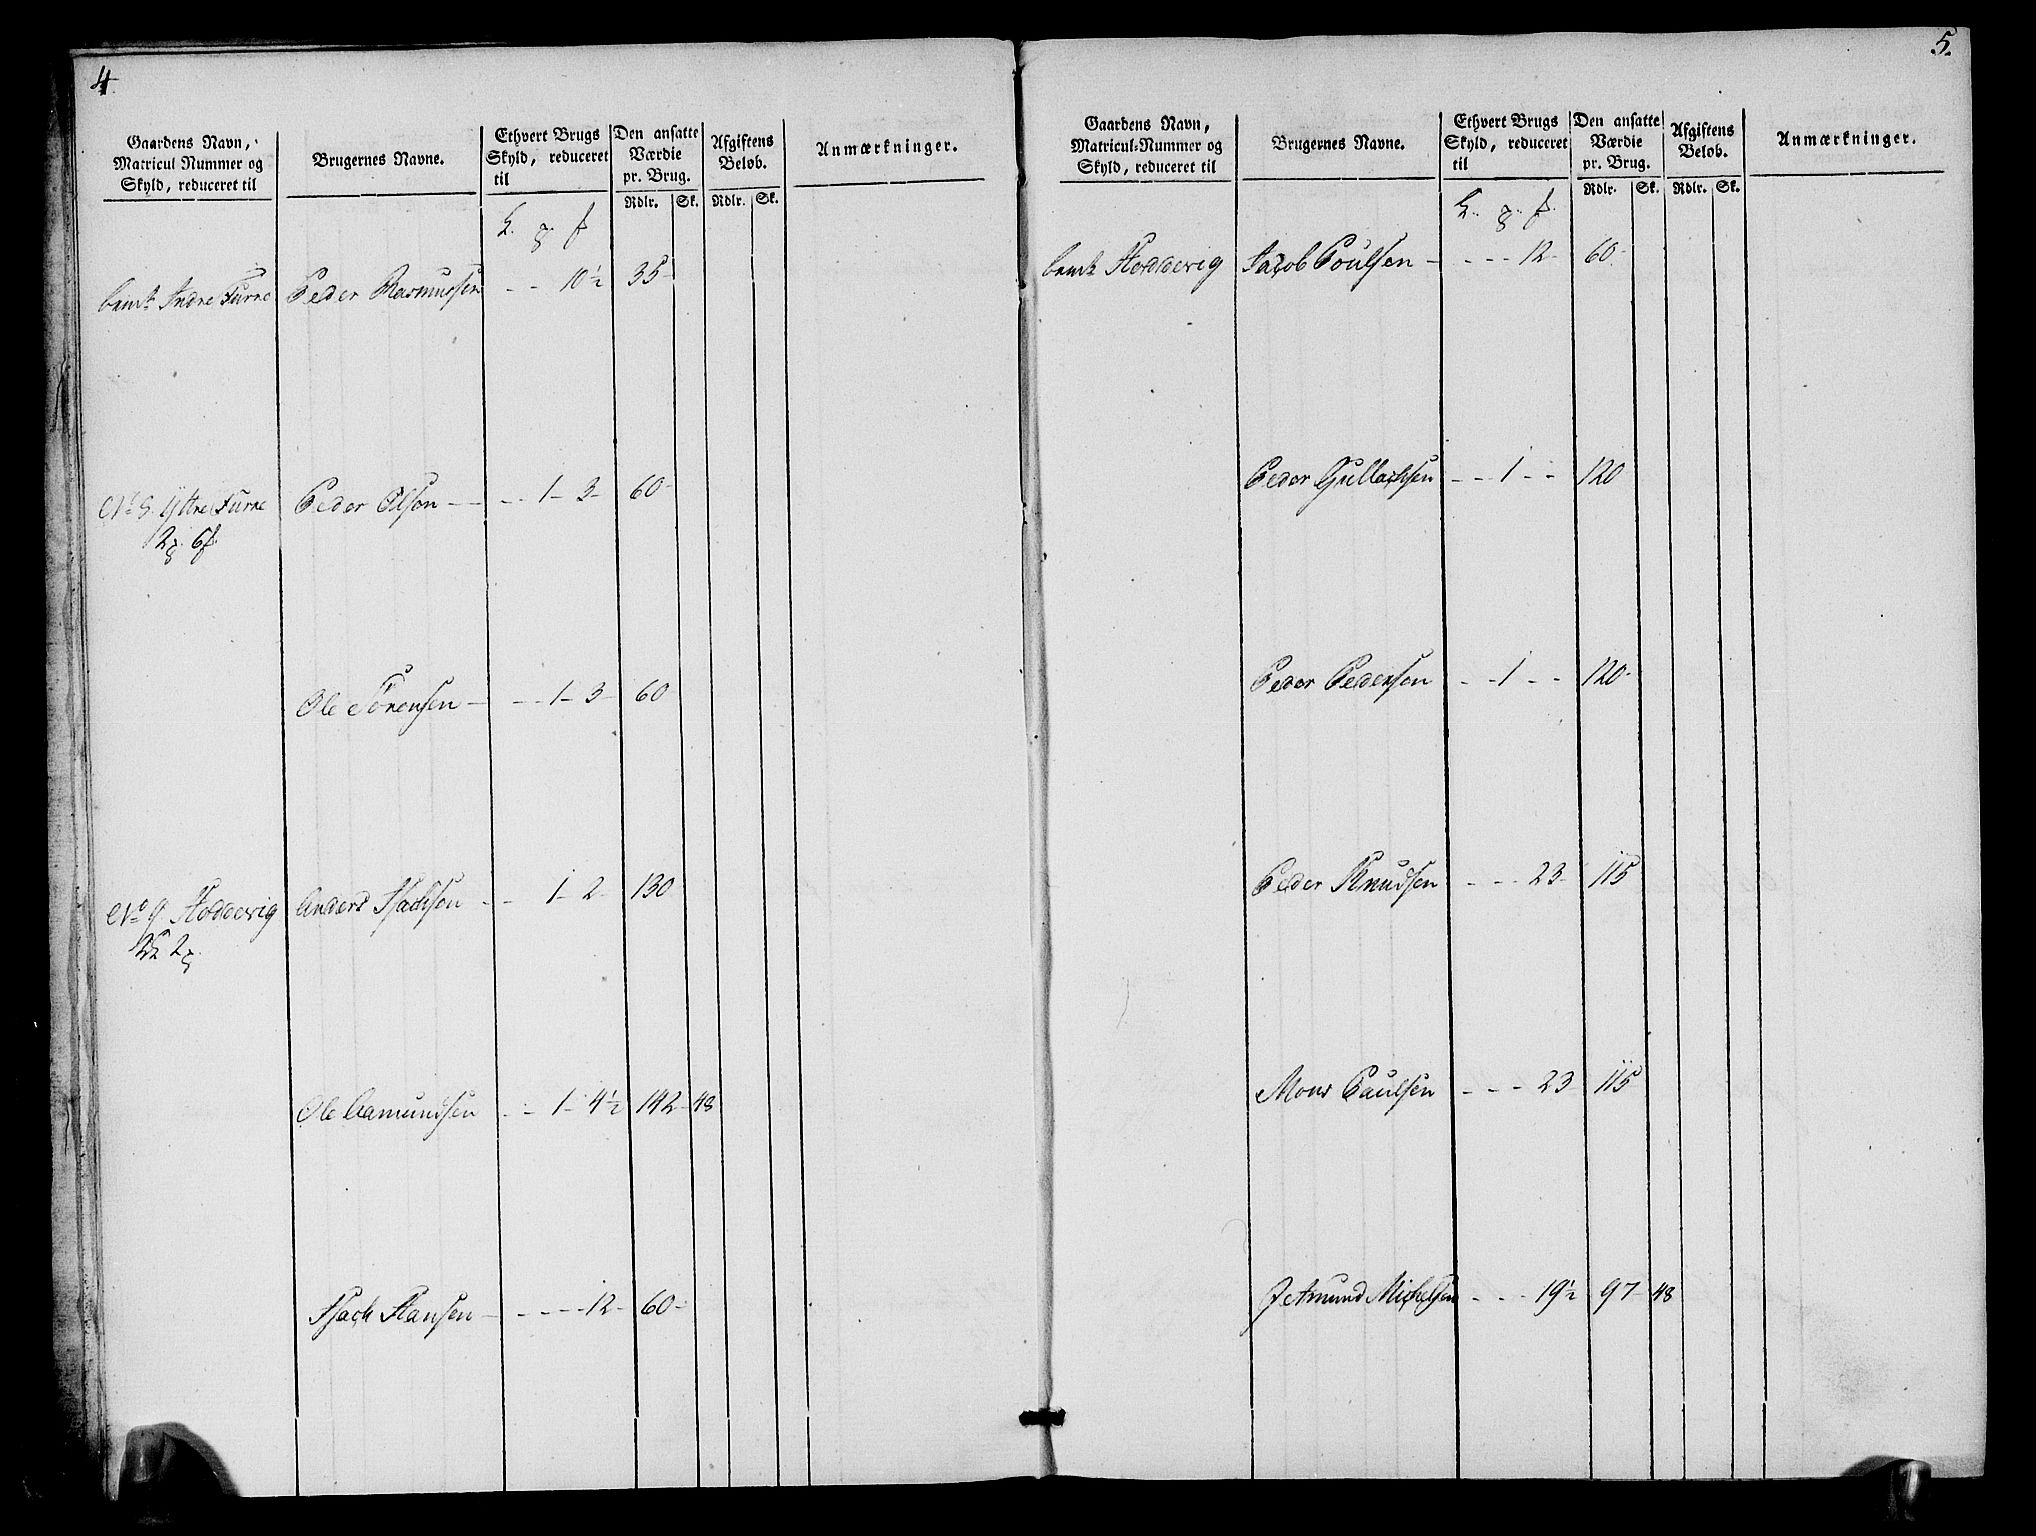 4
Gaardens Navn,
Matricul Nummer og
Skyld, reduceret til
Brugernes Navne.
Ethvert Brugs
Skyld, reduceret
til
Den ansatte
Værdie
pr. Brug.
Afgiftens
Beløb.
Anmærkninger.
Rdlr. Sk. Rdlr. Sk.
Indre Furre Peder Rasmussen - - 10½ 35-
Yttre Furre Peder Olsen - - - 1- 3- 60-
Ole Sørensen - - - 1- 3- 60
No 9 Hoddevig Anders Isachsen - - 1- 2- 130
Ole Aamundsen - - 1- 4½ 142- 48
Isach Hansen - - - - - 12- 60-
5.
Gaardens Navn,
Matricul-Nummer og
Skyld, reduceret til
Brugernes Navne.
Ethvert Brugs
Skyld, reduceret
til
Den ansatte
Værdie
pr. Brug.
Afgiftens
Beløb.
Anmærkninger.
Rdlr. Sk. Rdlr. Sk.
Hoddevig Jacob Poulsen - - - - 12- 60-
Peder Gullachsen - - 1 - - 120
Peder Pedersen - - 1 - - 120-
Peder Knudsen - - - 23- 115
Mons Paulsen - - - 23 115
Jetmund Michelsen - - - 19½ 97- 48